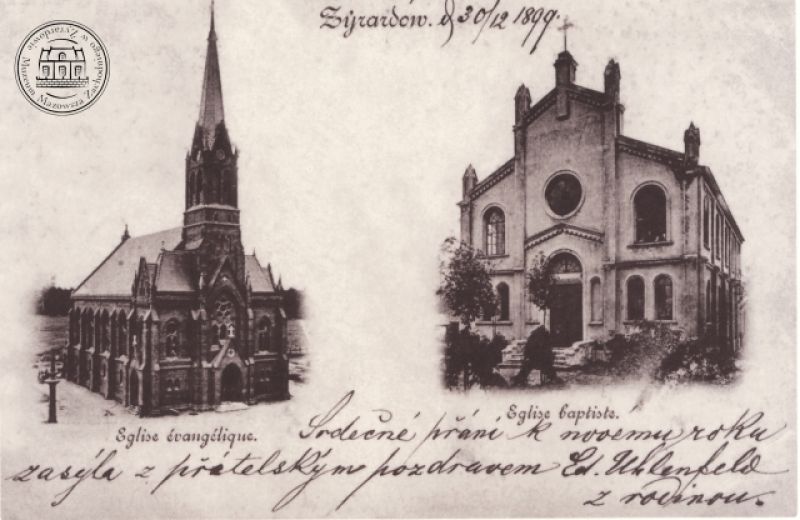 Muzeum Mazowsza Zachodniego w Żyrardowie
Żyrardów. d 30/12 1899.
Eglise évangélique.
Eglise baptiste.
Srdečné přání k novému roku
zasýla z přátelským pozdravem Ed. Uhlenfeld
z rodinou.